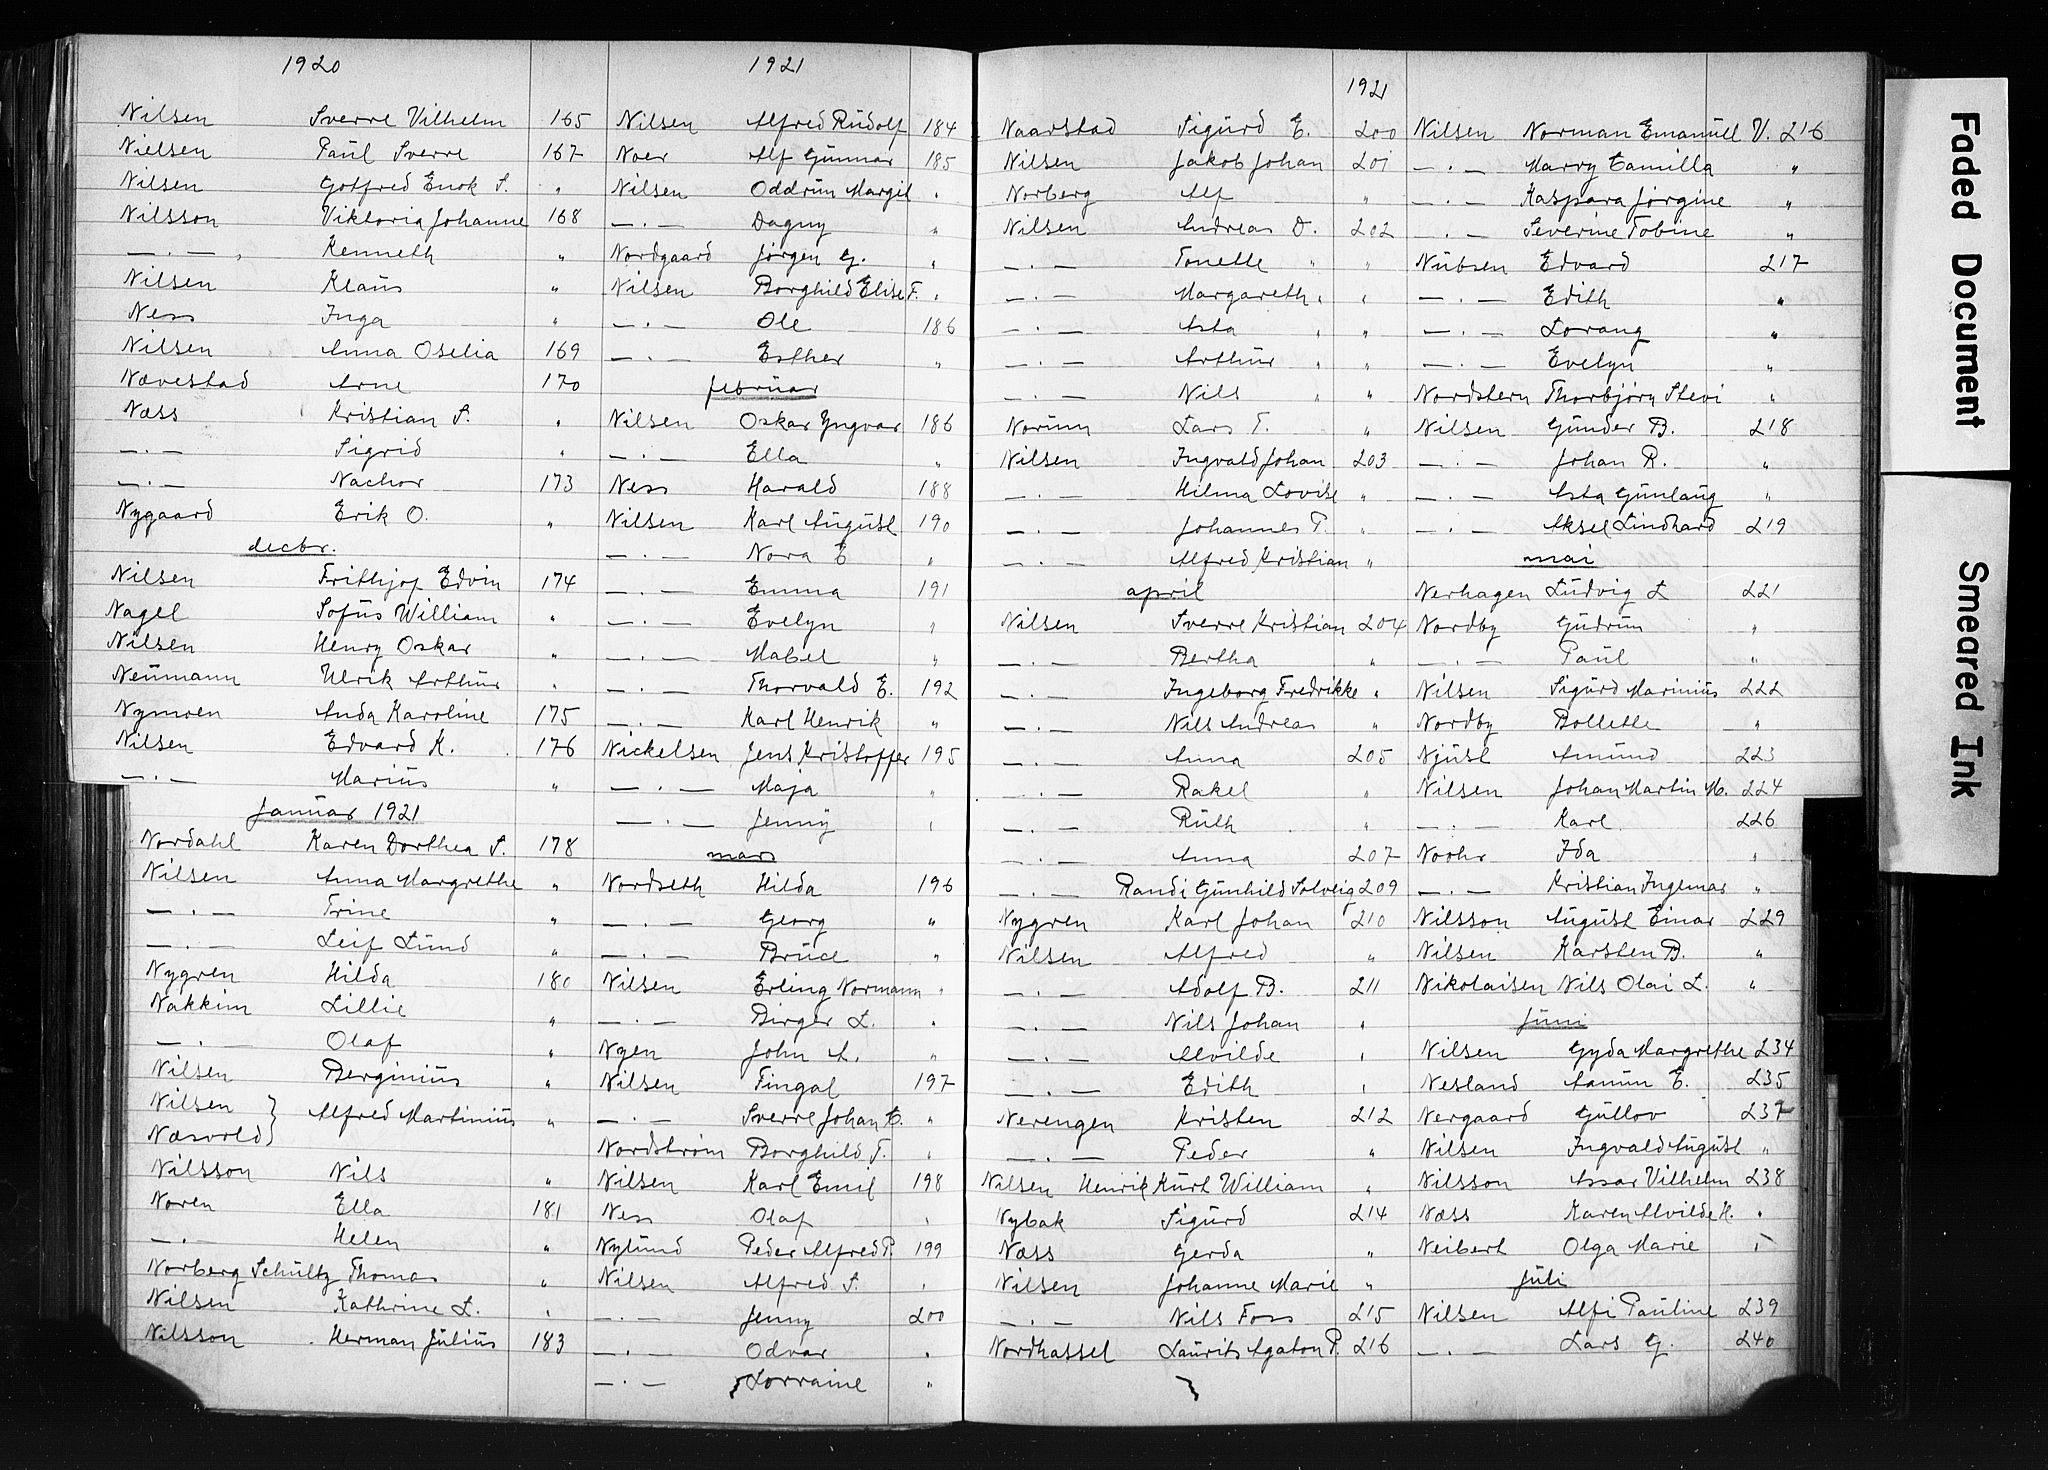 1920
Nilsen Sverre Vilhelm 165
Nielsen Paul Sverre 167
Nilsen Gotfred Enok S. "
Nilsson Viktoria Johanne 168
— . — , Kenneth "
Nilsen Klaus "
Ness Inga "
Nilsen Anna Oselia 169
Nævestad Arne 170
Næss Kristian S. "
— . — Sigrid "
— . — Nachor 173
Nygaard Erik O. "
decbr.
Nilsen Frithjof Edvin 174
Nagel Sofus William "
Nilsen Henry Oskar "
Neumann Ulrik Arthur "
Nymoen Anda Karoline 175
Nilsen Edvard K. 176
— . — Marius "
Januar 1921
Nordahl Karen Dorthea S. 178
Nilsen Anna Margrethe "
— . — Trine "
— . — Leif Lund "
Nygren Hilda 180
Nakkim Lillie "
— . — Olaf "
Nilsen Berginius "
Nilsen } Alfred Martinius "
Næsvold }
Nilsson Nils "
Noren Ella 181
— . — Helen "
Norberg Schultz Thomas "
Nilsen Kathrine L. "
Nilsson Herman Julius 183
1921
Nilsen Alfred Rudolf 184
Noer Alf Gunnar 185
Nilsen Oddrun Margit "
— . — Dagny "
Nordgaard Jørgen G. "
Nilsen Borghild Elise F. "
— . — Ole 186
— . — Esther "
februar
Nilsen Oskar Yngvar 186
— . — Ella "
Ness Harald 188
Nilsen Karl August 190
— . — Nora E "
— . — Emma 191
— . — Evelyn "
— . — Mabel "
— . — Thorvald E. 192
— . — Karl Henrik "
Nickelsen Jens Kristoffer 195
— . — Maja "
— . — Jenny "
mars
Nordseth Hilda 196
— . — Georg "
— . — Bruce "
Nilsen Erling Normann "
— . — Birger L. "
Nyen John A. "
Nilsen Fingal 197
— . — Sverre Johan C. "
Nordstrøm Borghild F. "
Nilsen Karl Emil 198
Ness Olaf "
Nylund Peder Alfred P. 199
Nilsen Alfred S. "
— . — Jenny 200
— . — Odvar "
— . — Lorraine "
1921
Naarstad Sigurd E. 200
Nilsen Jakob Johan 201
Norberg Alf "
Nilsen Andreas D. 202
— . — Tonette " "
— . — Margareth " "
— . — Asta " "
— . — Arthur " "
— . — Nils " "
Norum Lars T. "
Nilsen Ingvald Johan 203
— . — Hilma Lovise "
— . — Johannes P. "
— . — Alfred Kristian "
april
Nilsen Sverre Kristian 204
— . — Bertha "
— . — Ingeborg Fredrikke "
— . — Nils Andreas "
— . — Anna 205
— . — Rakel "
— . — Ruth "
— . — Anna 207
— . — Randi Gunhild Solveig 209
Nygren Karl Johan 210
Nilsen Alfred "
— . — Adolf B. 211
— . — Nils Johan "
— . — Alvilde "
— . — Edith "
Nerengen Kristen 212
— . — Peder "
Nilsen Henrik Kurt William "
Nybak Sigurd 214
Næss Gerda "
Nilsen Johanne Marie "
— . — Nils Foss 215
Nordhassel Laurits Agaton P. 216
Nilsen Norman Emanuel V. 216
— . — Marry Camilla "
— . — Kaspara Jørgine "
— . — Severine Tobine "
Nubsen Edvard 217
— . — Edith "
— . — Lorang "
— . — Evelyn "
Nordstern Thorbjørn Stevi "
Nilsen Gunder B. 218
— . — Johan R. "
— . — Asta Gunlaug "
— . — Aksel Lindhard 219
mai
Nerhagen Ludvig L 221
Nordby Gudrun "
— . — Paul "
Nilsen Sigurd Marinius 222
Nordby Bollette "
Njust Amund 223
Nilsen Johan Martin M. 224
— . — Karl 226
Noohr Ida "
— . — Kristian Ingemar "
Nilsson August Einar 229
Nilsen Karsten B. "
Nikolaisen Nils Olai L. "
Juni
Nilsen Gyda Margrethe 234
Nesland Aanun E. 235
Nergaard Gullov 237
Nilsen Ingvald August "
Nilsson Assar Vilhelm 238
Næss Karen Alvilde H. "
Neibert Olga Marie "
Juli
Nilsen Alfi Pauline 239
— . — Lars G. 240
Faded Document
Smeared Ink